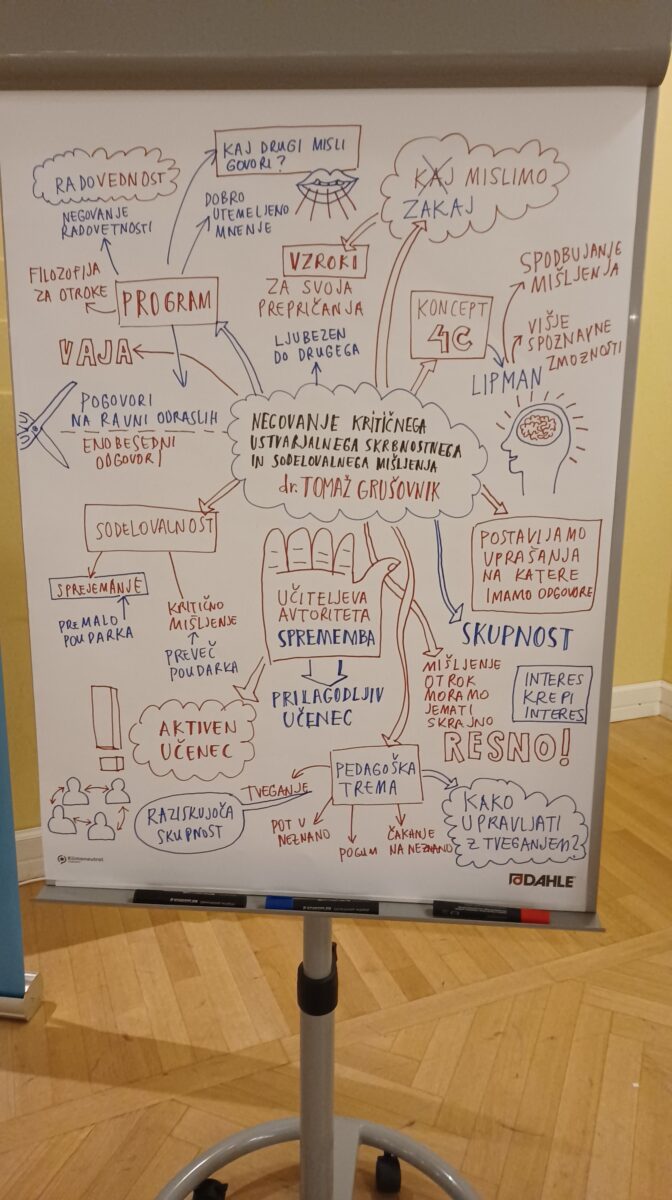 KAJ DRUGI MISLI
GOVORI?
RADOVEDNOST
NEGOVANJE
RADOVETNOSTI
DOBRO
UTEMELJENO
MNENJE
KAJ MISLIMO
ZAKAJ
FILOZOFIJA
ZA OTROKE
PROGRAM
VZROKI
ZA SVOJA
PREPRIČANJA
LJUBEZEN
DO DRUGEGA
KONCEPT
4C
SPODBUJANJE
MIŠLJENJA
VIŠJE
SPOZNAVNE
ZMOŽNOSTI
LIPMAN
VAJA
POGOVORI
NA RAVNI ODRASLIH
ENOBESEDNI
ODGOVORI
NEGOVANJE KRITIČNEGA
USTVARJALNEGA SKRBNOSTNEGA
IN SODELOVALNEGA MIŠLJENJA
dr. TOMAŽ GRUŠOVNIK
SODELOVALNOST
SPREJEMANJE
PREMALO
POUDARKA
KRITIČNO
MIŠLJENJE
PREVEČ
POUDARKA
UČITELJEVA
AVTORITETA
SPREMEMBA
PRILAGODLJIV
UČENEC
POSTAVLJAMO
VPRAŠANJA
NA KATERE
IMAMO ODGOVORE
SKUPNOST
MIŠLJENJE
OTROK
MORAMO
JEMATI
SKRAJNO
RESNO!
INTERES
KREPI
INTERES
!
AKTIVEN
UČENEC
RAZISKUJOČA
SKUPNOST
PEDAGOŠKA
TREMA
TVEGANJE
POT V
NEZNANO
POGUM
ČAKANJE
NA NEZNANO
KAKO
UPRAVLJATI
Z TVEGANJEM?
DAHLE